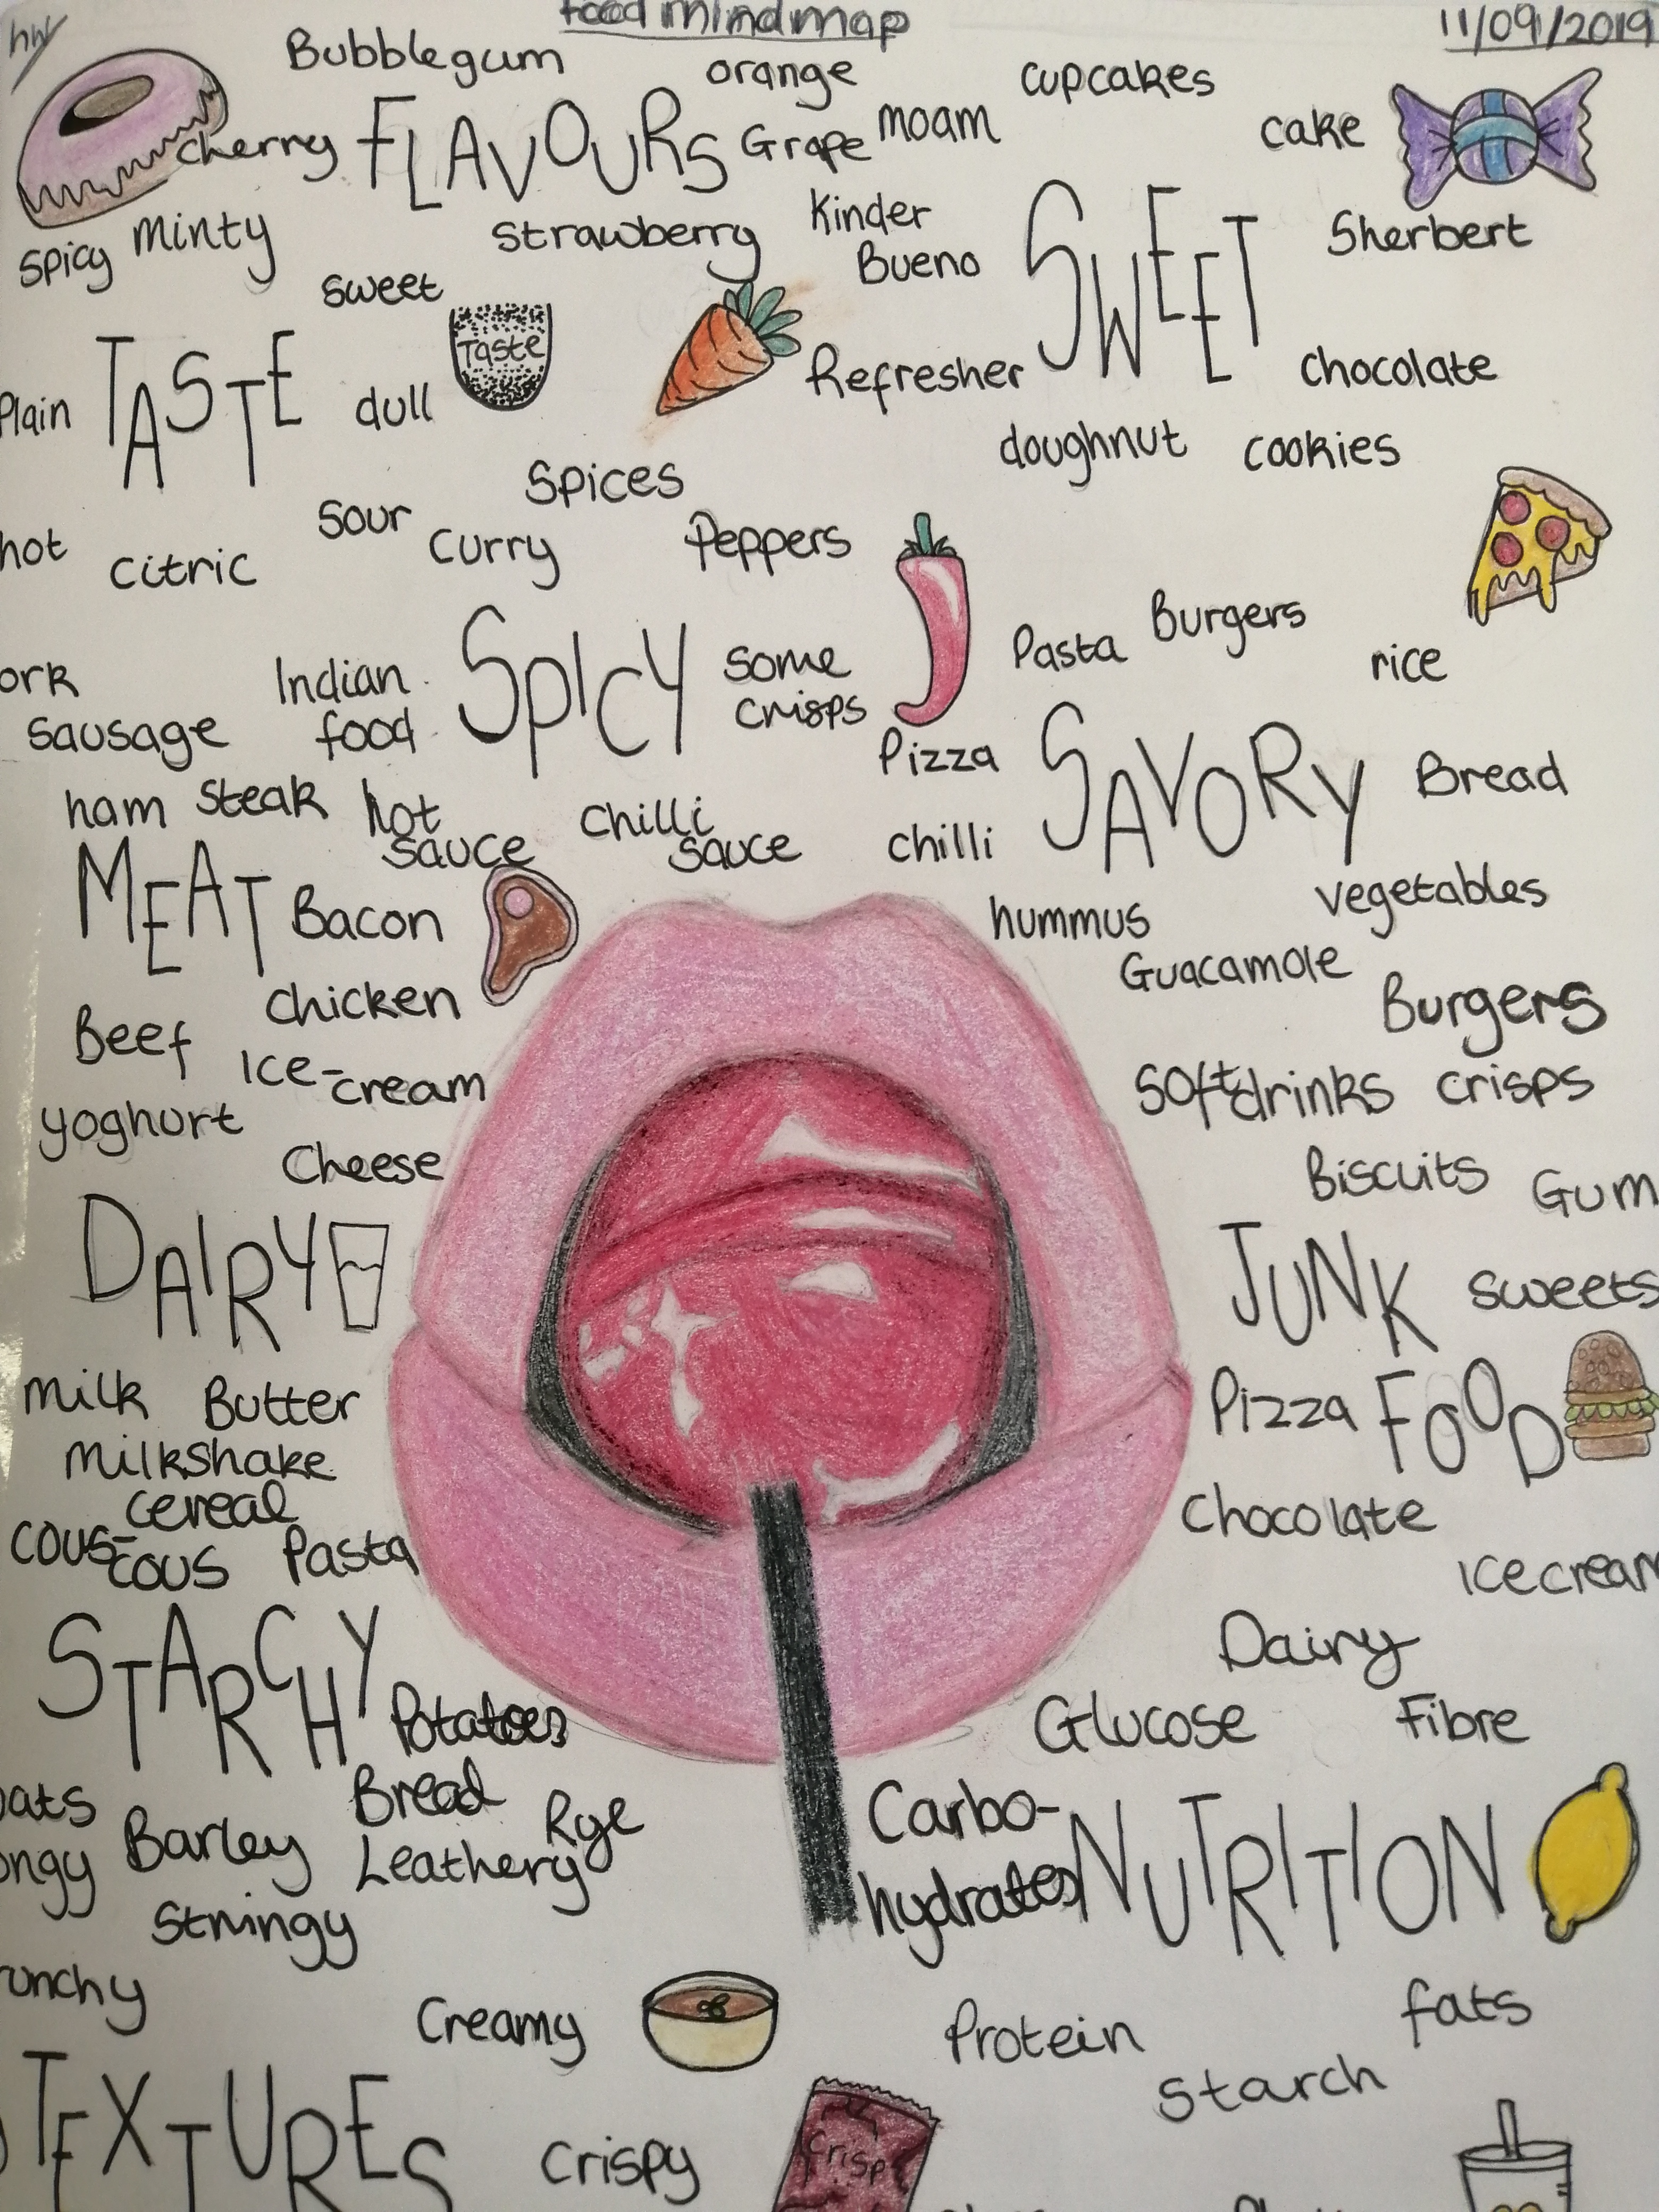 hw
food mindmap
11/09/2019
Bubblegum
orange
cupcakes
cherry
FLAVOURS
Grape
moam
cake
spicy
minty
strawberry
Kinder
Bueno
SWEET
Sherbert
sweet
Taste
Plain
TASTE
dull
Refresher
chocolate
doughnut
cookies
Spices
hot
citric
sour
curry
Peppers
Indian
food
SPICY
some
crisps
Pasta
Burgers
rice
ork
sausage
Pizza
SAVORY
Bread
ham
steak
hot
sauce
chilli
sauce
chilli
MEAT
Bacon
hummus
vegetables
chicken
Guacamole
Beef
Burgers
Ice-cream
yoghurt
Soft drinks
crisps
Cheese
Biscuits
Gum
DAIRY
JUNK
sweets
milk
Butter
Pizza
FOOD
Milkshake
cereal
Chocolate
cous-
cous
Pasta
Icecream
STARCHY
Potatoes
Dairy
Glucose
Fibre
oats
Bread
Rye
Carbo-
hydrates
NUTRITION
ongy
Barley
Leathery
Stringy
runchy
Creamy
Protein
fats
starch
TEXTURES
Crispy
Crisp